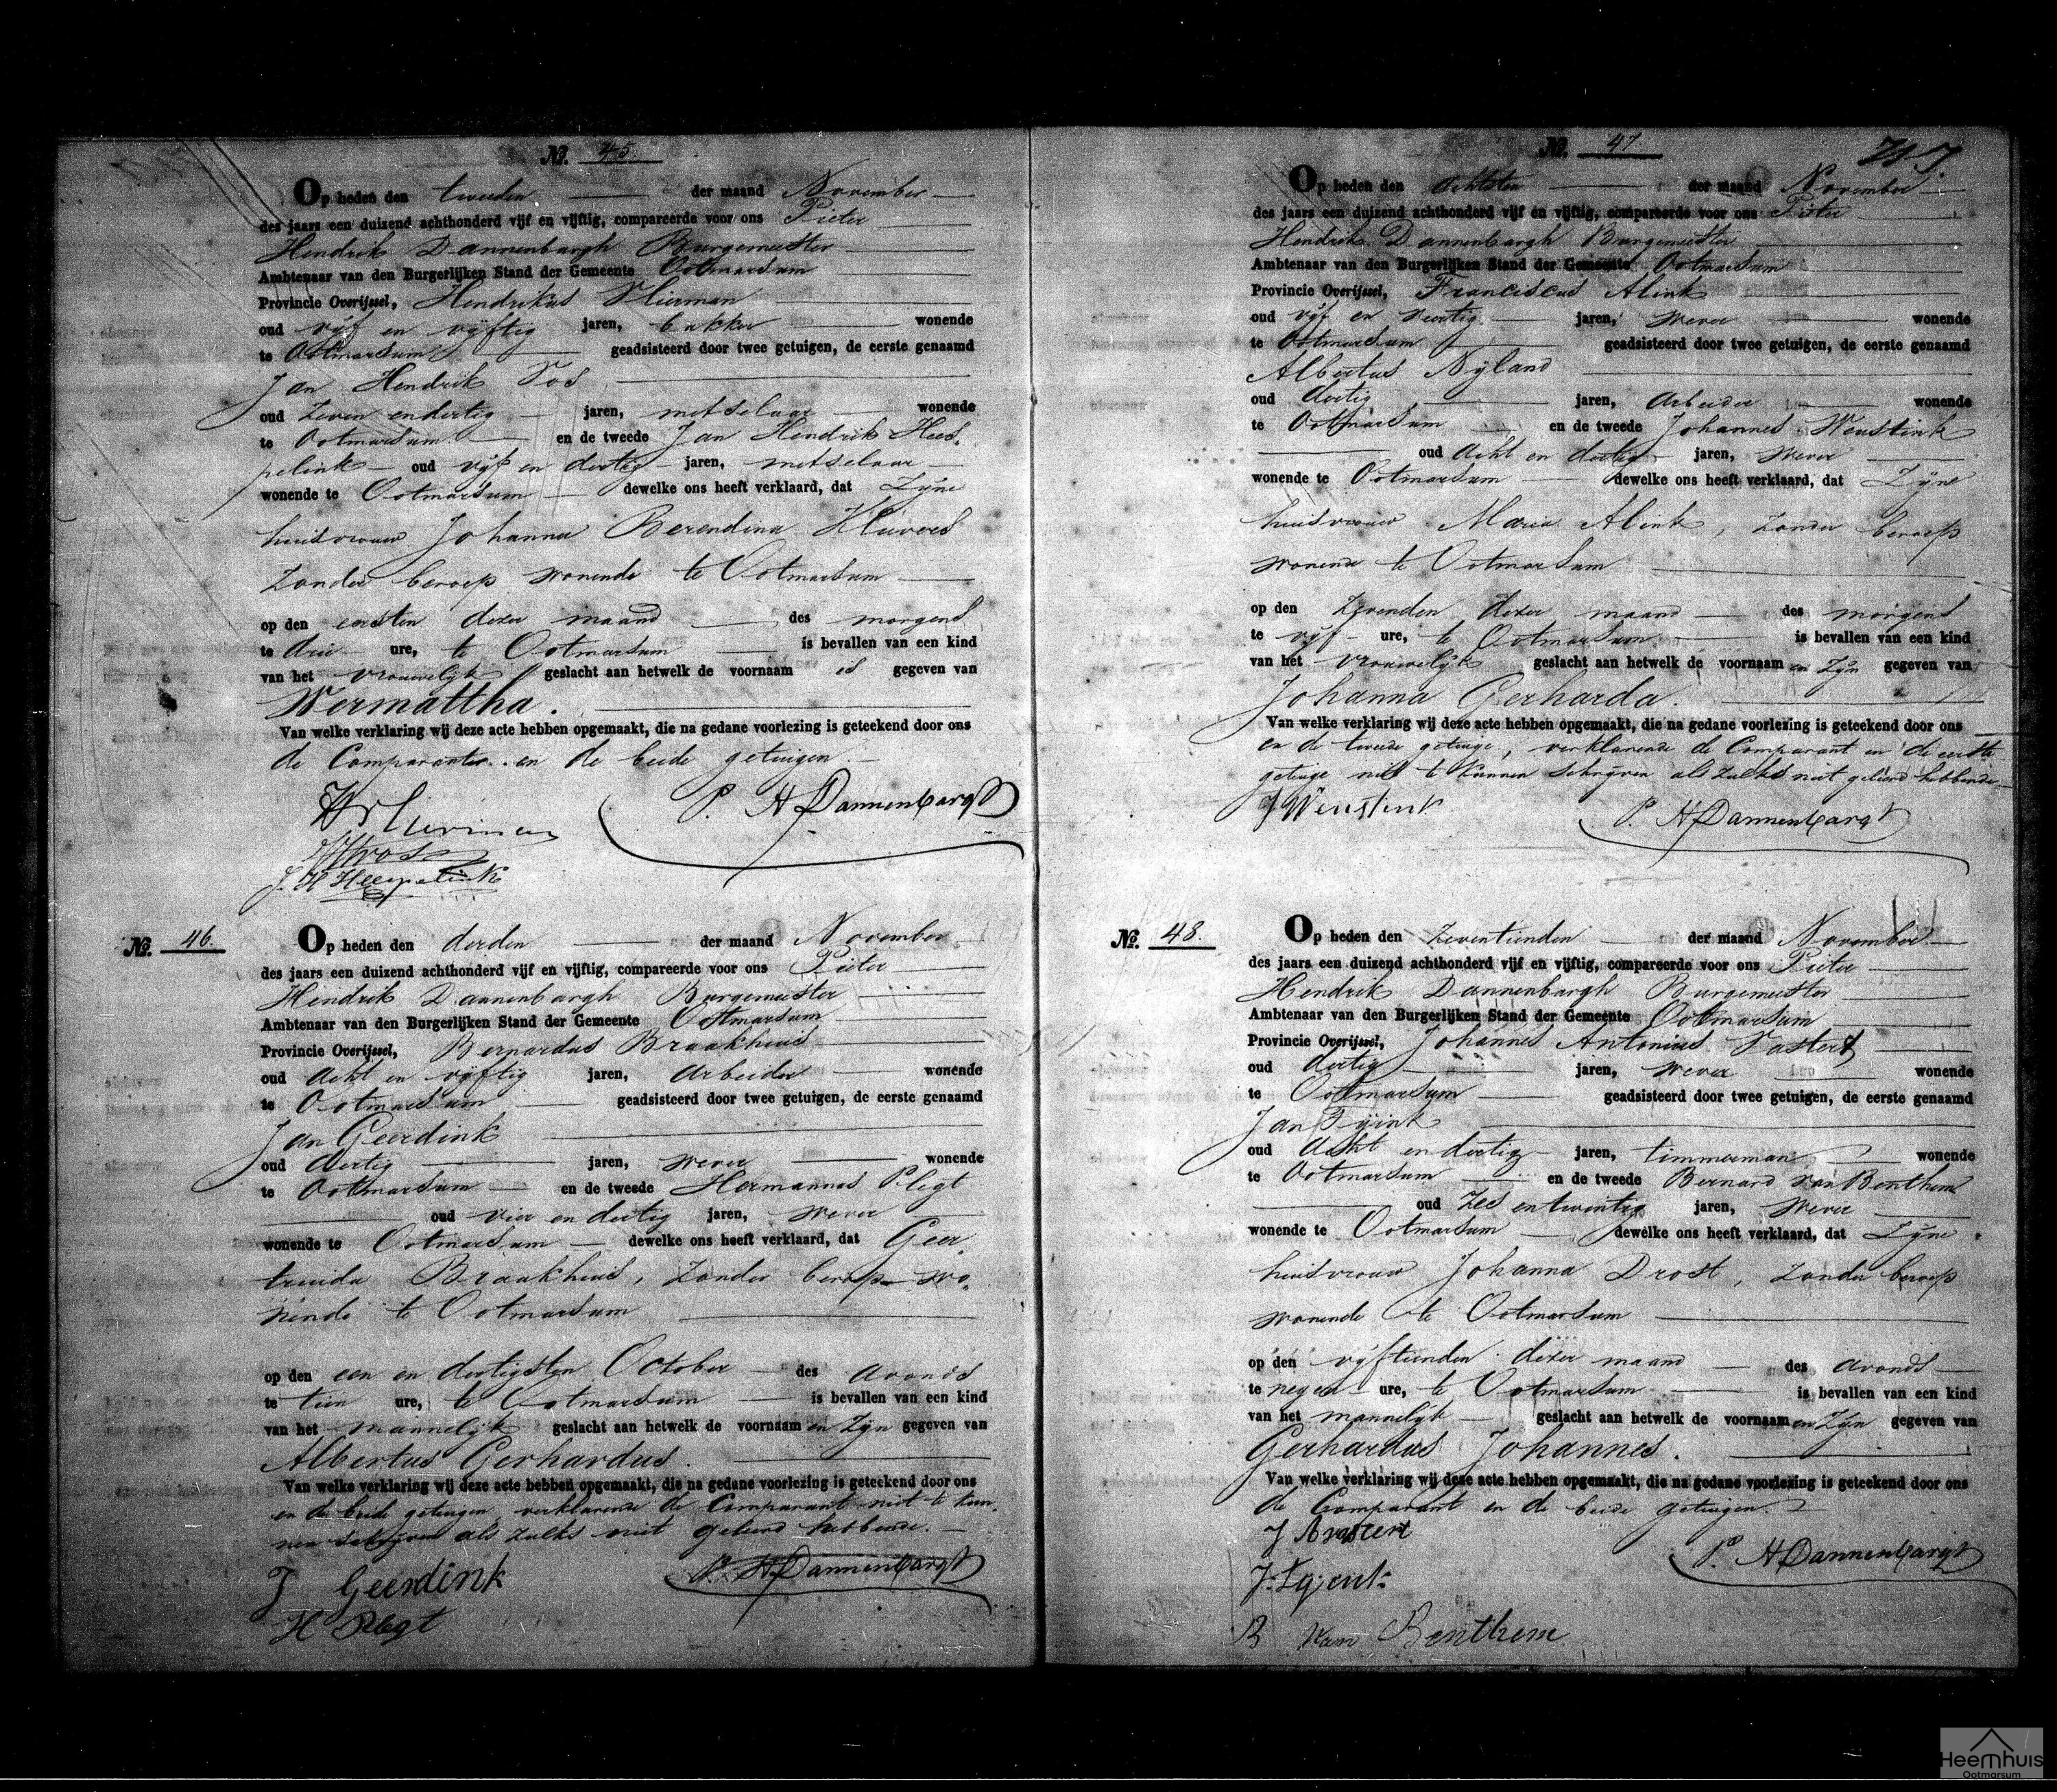 No. 45.
Op heden den tweeden der maand November
des jaars een duizend achthonderd vijf en vijftig, compareerde voor ons Pieter
Hendrik Dannenbargh Burgemeester
Ambtenaar van den Burgerlijken Stand der Gemeente Ootmarsum
Provincie Overijssel, Hendrikus
oud vijf en vijftig jaren, bakker wonende
te Ootmarsum geadsisteerd door twee getuigen, de eerste genaamd
Jan Hendrik Vos
oud zeven en dertig jaren, metselaar wonende
te Ootmarsum en de tweede Jan Hendrik Hees-
pelink oud vijf en dertig jaren, metselaar
wonende te Ootmarsum dewelke ons heeft verklaard, dat zijne
huisvrouw Johanna Berendina
zonder beroep wonende te Ootmarsum
op den eersten dezer maand des morgens
te drie ure, te Ootmarsum is bevallen van een kind
van het vrouwelijk geslacht aan hetwelk de voornaam is gegeven van
Wermattha.
Van welke verklaring wij deze acte hebben opgemaakt, die na gedane voorlezing is geteekend door ons
de Comparanten en de beide getuigen.
P. H Dannenbargh
JHVos
J. H Heespelink
No. 46.
Op heden den derden der maand November
des jaars een duizend achthonderd vijf en vijftig, compareerde voor ons Pieter
Hendrik Dannenbargh Burgemeester
Ambtenaar van den Burgerlijken Stand der Gemeente Ootmarsum
Provincie Overijssel, Bernardus Braakhuis
oud acht en vijftig jaren, arbeider wonende
te Ootmarsum geadsisteerd door twee getuigen, de eerste genaamd
Jan Geerdink
oud dertig jaren, wever wonende
te Ootmarsum en de tweede Hermannus Plegt
oud vier en dertig jaren, wever
wonende te Ootmarsum dewelke ons heeft verklaard, dat Geer-
truida Braakhuis, zonder beroep wo-
nende te Ootmarsum
op den een en dertigsten October des avonds
te tien ure, te Ootmarsum is bevallen van een kind
van het mannelijk geslacht aan hetwelk de voornaam en zijn gegeven van
Albertus Gerhardus.
Van welke verklaring wij deze acte hebben opgemaakt, die na gedane voorlezing is geteekend door ons
en de beide getuigen, verklarende de Comparant niet te kun-
nen schrijven als zulks niet geleerd hebbende.
J Geerdink
P. H Dannenbargh
H Plegt
No. 47.
Op heden den achtsten der maand November
des jaars een duizend achthonderd vijf en vijftig, compareerde voor ons Pieter
Hendrik Dannenbargh Burgemeester
Ambtenaar van den Burgerlijken Stand der Gemeente Ootmarsum
Provincie Overijssel, Franciscus Alink
oud vijf en veertig jaren, wever wonende
te Ootmarsum geadsisteerd door twee getuigen, de eerste genaamd
Albertus Nijland
oud dertig jaren, arbeider wonende
te Ootmarsum en de tweede Johannes Weustink
oud acht en dertig jaren, wever
wonende te Ootmarsum dewelke ons heeft verklaard, dat zijne
huisvrouw Maria Alink, zonder beroep
wonende te Ootmarsum
op den zevenden dezer maand des morgens
te vijf ure, te Ootmarsum is bevallen van een kind
van het vrouwelijk geslacht aan hetwelk de voornaam en zijn gegeven van
Johanna Gerharda.
Van welke verklaring wij deze acte hebben opgemaakt, die na gedane voorlezing is geteekend door ons
en de tweede getuige, verklarende de Comparant en de eerste
getuige niet te kunnen schrijven als zulks niet geleerd hebbende
J Weustink
P. H Dannenbargh
No. 48.
Op heden den zeventienden der maand November
des jaars een duizend achthonderd vijf en vijftig, compareerde voor ons Pieter
Hendrik Dannenbargh Burgemeester
Ambtenaar van den Burgerlijken Stand der Gemeente Ootmarsum
Provincie Overijssel, Johannes Antonius Vastert
oud dertig jaren, wever wonende
te Ootmarsum geadsisteerd door twee getuigen, de eerste genaamd
Jan Tijink
oud acht en dertig jaren, timmerman wonende
te Ootmarsum en de tweede Bernard van Benthem
oud zes en twintig jaren, wever
wonende te Ootmarsum dewelke ons heeft verklaard, dat zijne
huisvrouw Johanna Drost, zonder beroep
wonende te Ootmarsum
op den vijftienden dezer maand des avonds
te negen ure, te Ootmarsum is bevallen van een kind
van het mannelijk geslacht aan hetwelk de voornaam en zijn gegeven van
Gerhardus Johannes.
Van welke verklaring wij deze acte hebben opgemaakt, die na gedane voorlezing is geteekend door ons
de Comparant en de beide getuigen.
P. H Dannenbargh
B van Benthem
Heemhuis
Ootmarsum